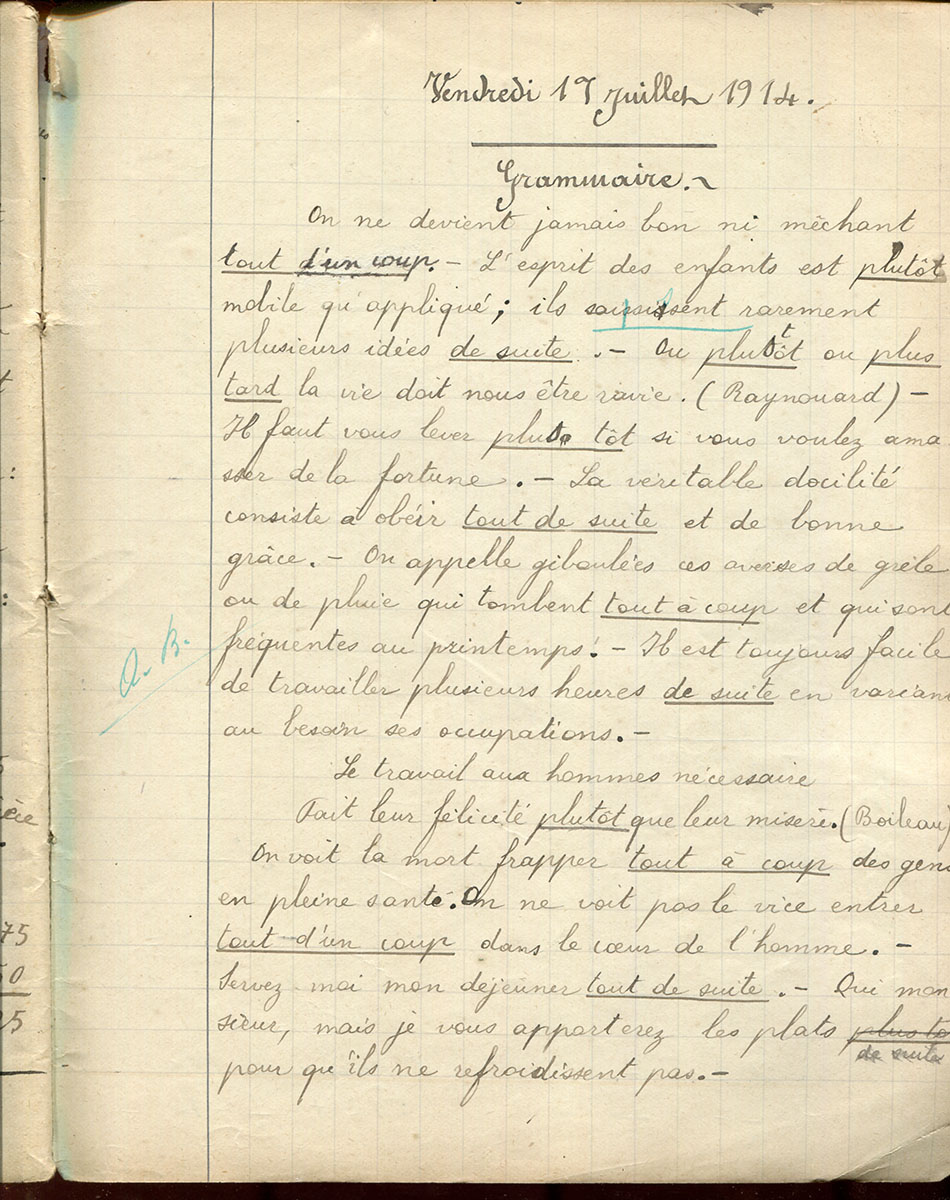 Vendredi 17 Juillet 1914.
Grammaire.~
On ne devient jamais bon ni méchant
tout d'un coup. – L'esprit des enfants est plutôt
mobile qu'appliqué ; ils saisissent rarement
plusieurs idées de suite. – Ou plutôt ou plus
tard la vie doit nous être ravie. (Raynouard) –
Il faut vous lever plus tôt si vous voulez ama
sser de la fortune. – La veritable docilité
consiste à obéir tout de suite et de bonne
grâce. – On appelle giboulées ces averses de grêle
ou de pluie qui tombent tout à coup et qui sont
fréquentes au printemps! – Il est toujours facile
de travailler plusieurs heures de suite en varian
au besoin ses occupations. –
Le travail aux hommes nécessaire
Fait leur félicité plutôt que leur misère. (Boileau)
On voit la mort frapper tout à coup des gens
en pleine santé. On ne voit pas le vice entrer
tout d'un coup dans le cœur de l'homme. –
Servez moi mon déjeuner tout de suite. – Oui mon
sieur, mais je vous apporterez les plats plus to
de suite
pour qu'ils ne refroidissent pas. –
75
50
25